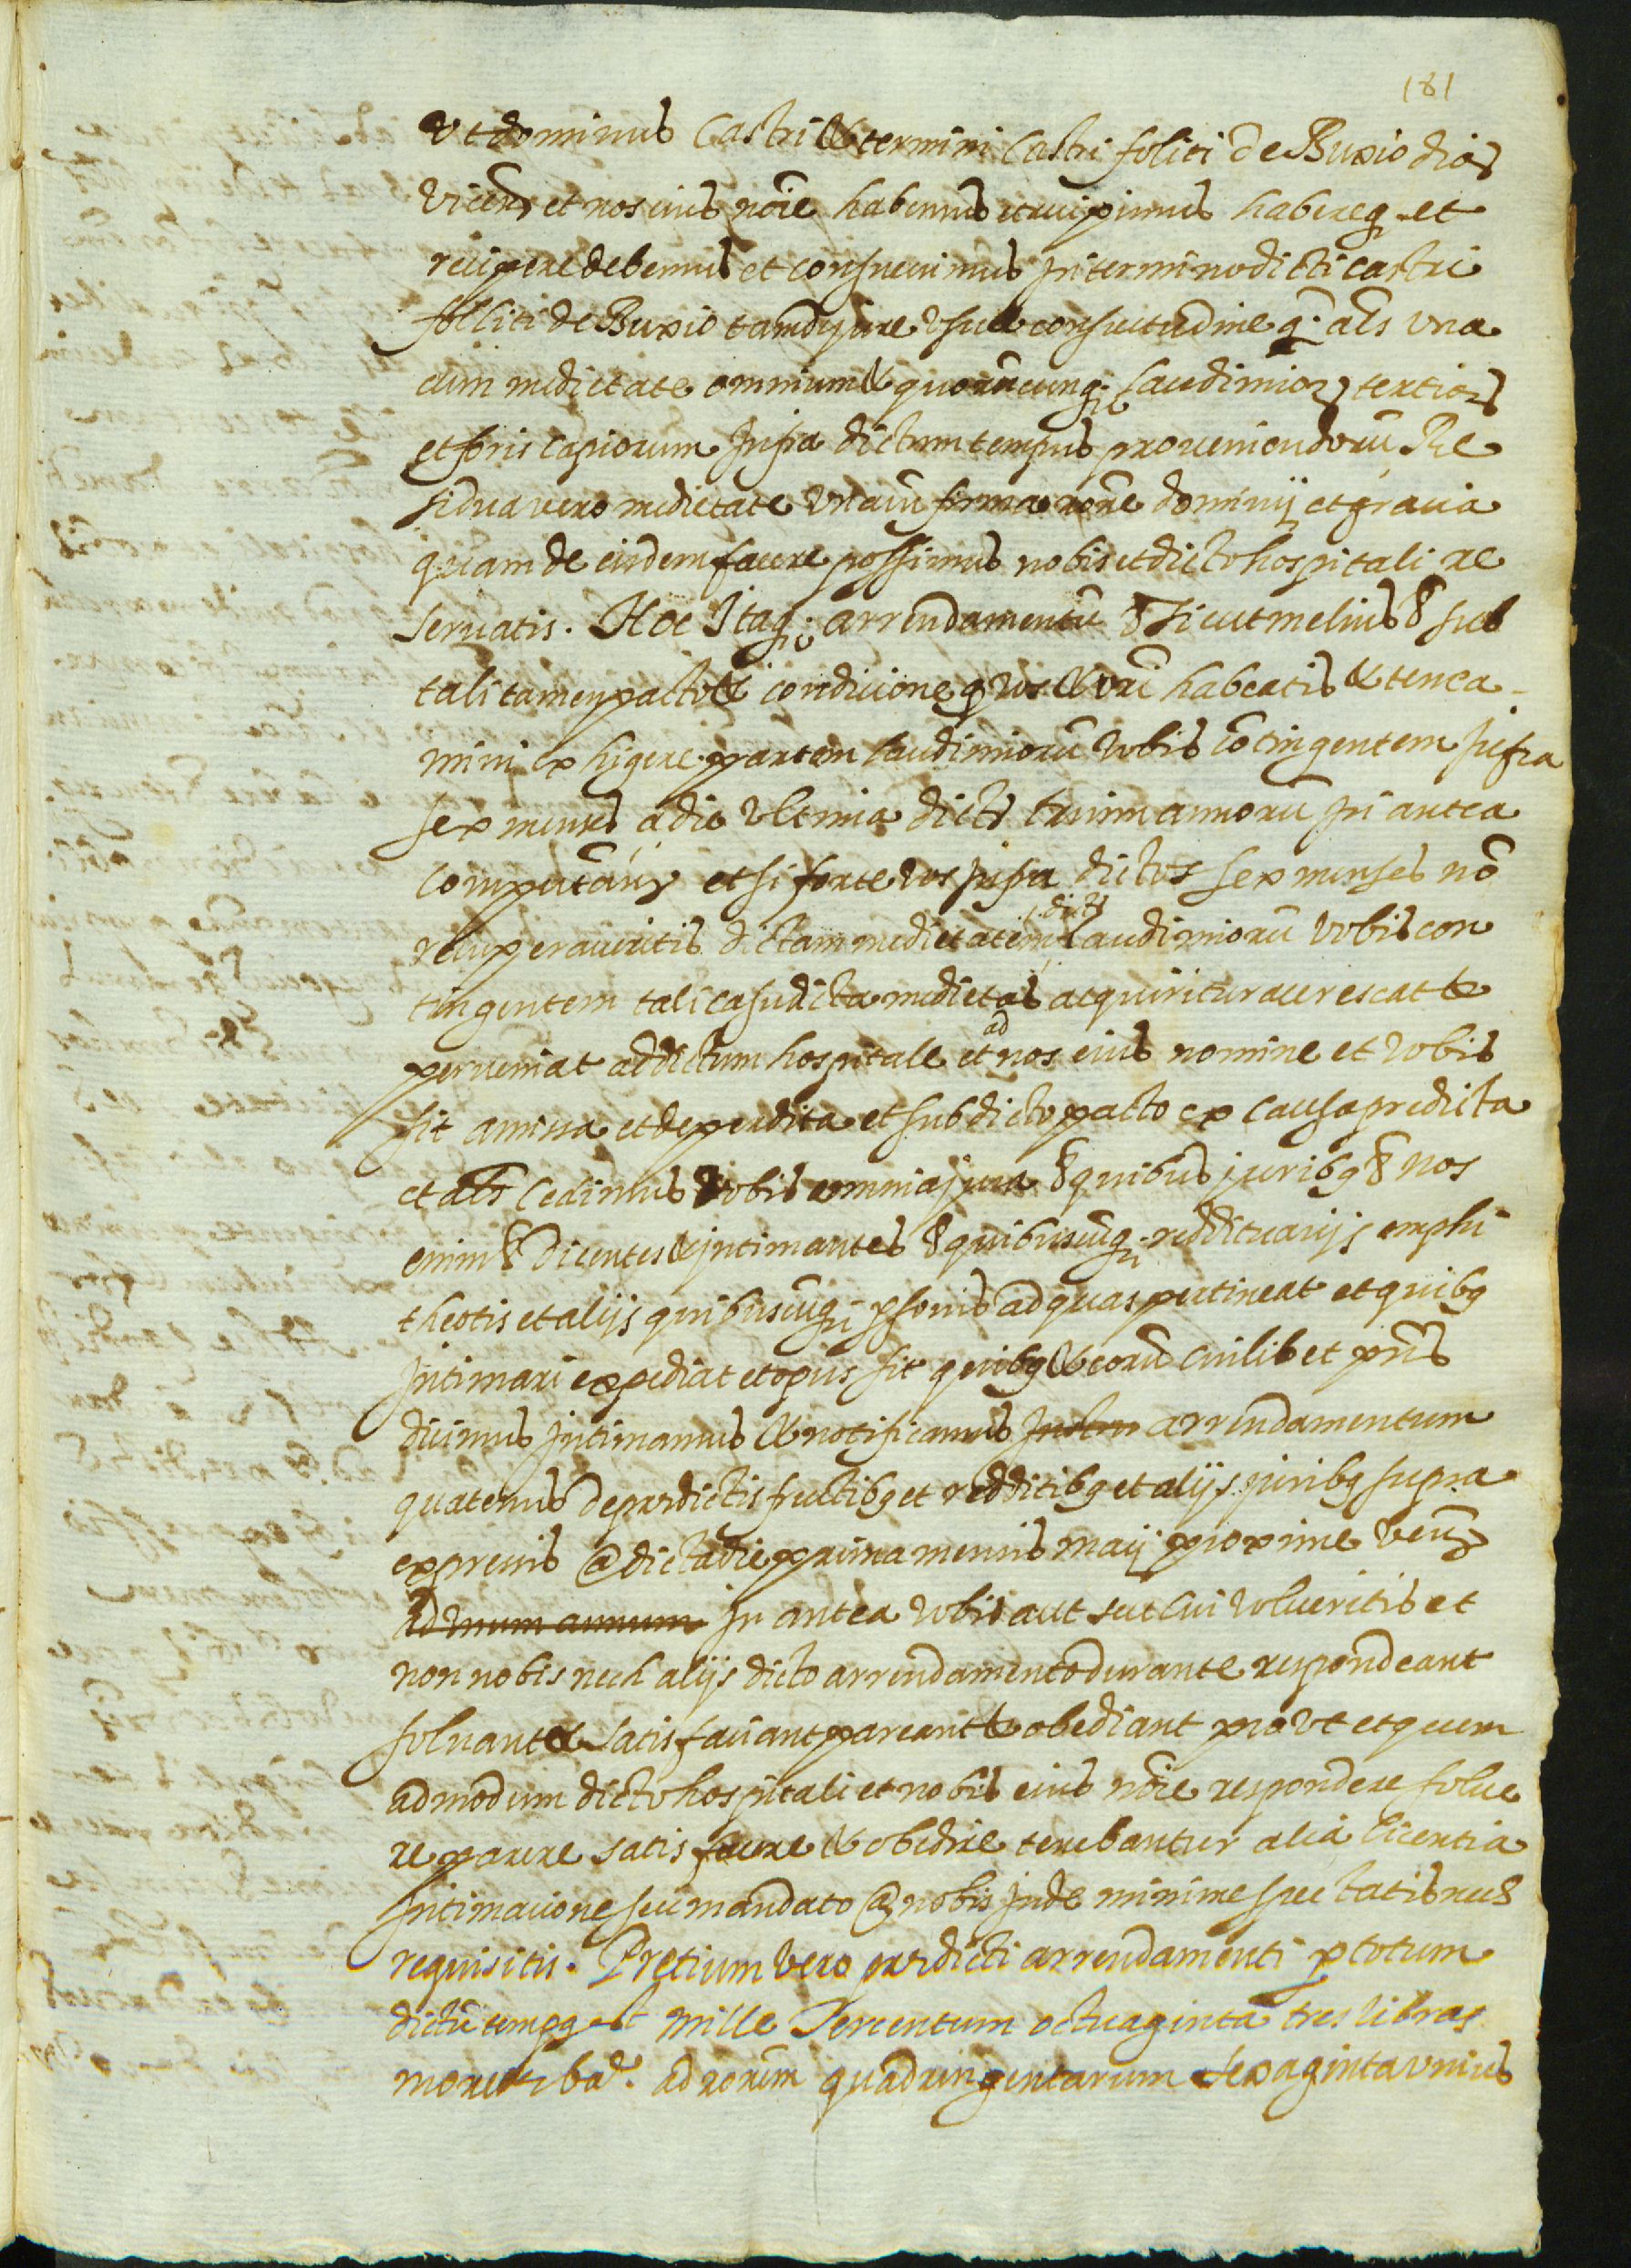 181
ut dominus Castri & termini Castri foliti de Buxio dios
Vicem et nos eius noīe habemus et recipimus habereq; et
recipere debemus et consuevimus in termino dicti castri
folliti de Buxio tam de jure usu & consuetudine q; als una
cum medietate omnium & quorūcunq; laudimior tertior
et foriscapiorum infra dictum tempus proveniendorū Re
sidua vero medietate unacū firma rōne dominij et gracia
quam de eisdem facere possimus nobis et dicto hospitali re
servatis. Hoc Itaq; arrendamentū & sicut melius & sub
tali tamen pacto & condicione q vos & vrī habeatis & tenea
mini exhigere partem laudimiorū vobis cōtingentem infra
sex menses a die ultima dicti trium annorū in antea
computān et si forte vos infra dictos sex menses nō
recuperaveritis dictam medietatem dictor laudimiorū vobis con
tingentem tali casu dicta medietas acquiritur accrescat &
perveniat ad dictum hospitale et ad nos eius nomine et vobis
sit amissa et deperdita et sub dicto pacto ex causa predicta
et als cedimus vobis omnia jura & quibus juribq & nos
enim & Dicentes & intimantes & quibuscūq; reddituarijs emphi
theotis et alijs quibuscūq; psonis ad quas pertineat et quibq
intimari expediat et opus sit quibq & eorū cuilibet pns
dicimus intimamus & notificamus arrendamentum
quatenus de predictis fructibq et redditibq et alijs juribq supra
expressis a dicta die prima mensis maij proxime ven
ad unum annum in antea vobis aut cui volueritis et
non nobis nech alijs dicto arrendamento durante respondeant
solvant & satisfaciant pareant & obediant prout et quem
admodum dicto hospitali et nobis eius noīe respondere solve
re parere satisfacere & obedire tenebantur alia licentia
intimacione seu mandato a nobis inde minime spectatis nec
requisitis. Pretium vero predicti arrendamenti p totum
dictū tempq est mille Tercentum octuaginta tres libras
monete bar. ad rōnem quadringentarum sexaginta unius